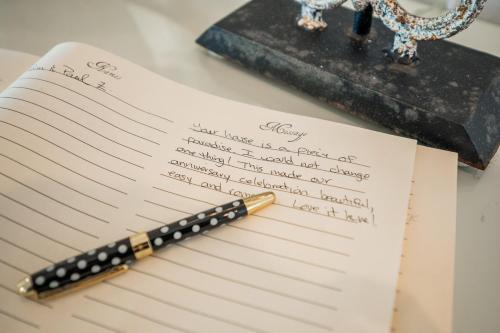 Names
& Paul Z
Message
Your house is a piece of
paradise I would not change
one thing! This made our
anniversary celebration beautiful,
easy and
Love it here